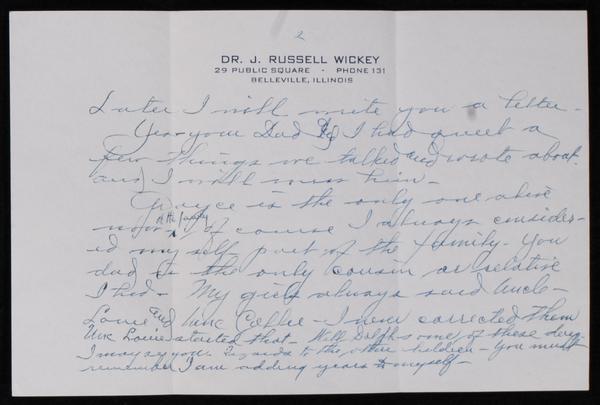 2
DR. J. RUSSELL WICKEY
29 PUBLIC SQUARE · PHONE 131
BELLEVILLE, ILLINOIS
Later I will write you a letter -
Yes - your Dad & I had quiet a
few things we talked and wrote about
and I will miss him -
Grayce is the only one alive
now of the family, of course I always consider-
ed my self part of the family - You
dad is the only cousin or relative
I had - My girls always said Uncle
Louie and Unk Collie - I never corrected them
Unk Louie started that - Well Dolph some of these days
I may see you. Regards to the other children - You must
remember I am adding years to myself -